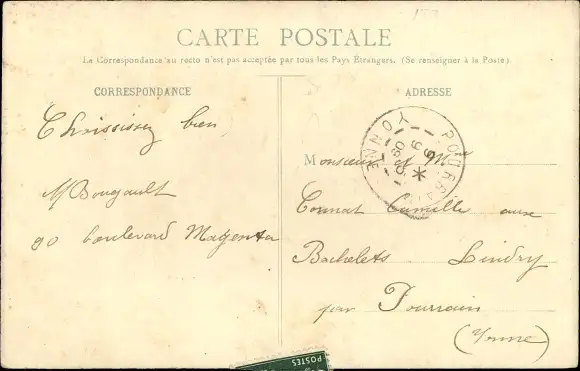 CARTE POSTALE
La Correspondance au recto n'est pas acceptée par tous les Pays Étrangers. (Se renseigner à la Poste).
CORRESPONDANCE
bien
M Bougault
90 boulevard Magenta
ADRESSE
Monsieur et Mme
Camille aux
Bachelets Lindry
par Pourrain
(Yonne)
POURRAIN
YONNE
POSTES